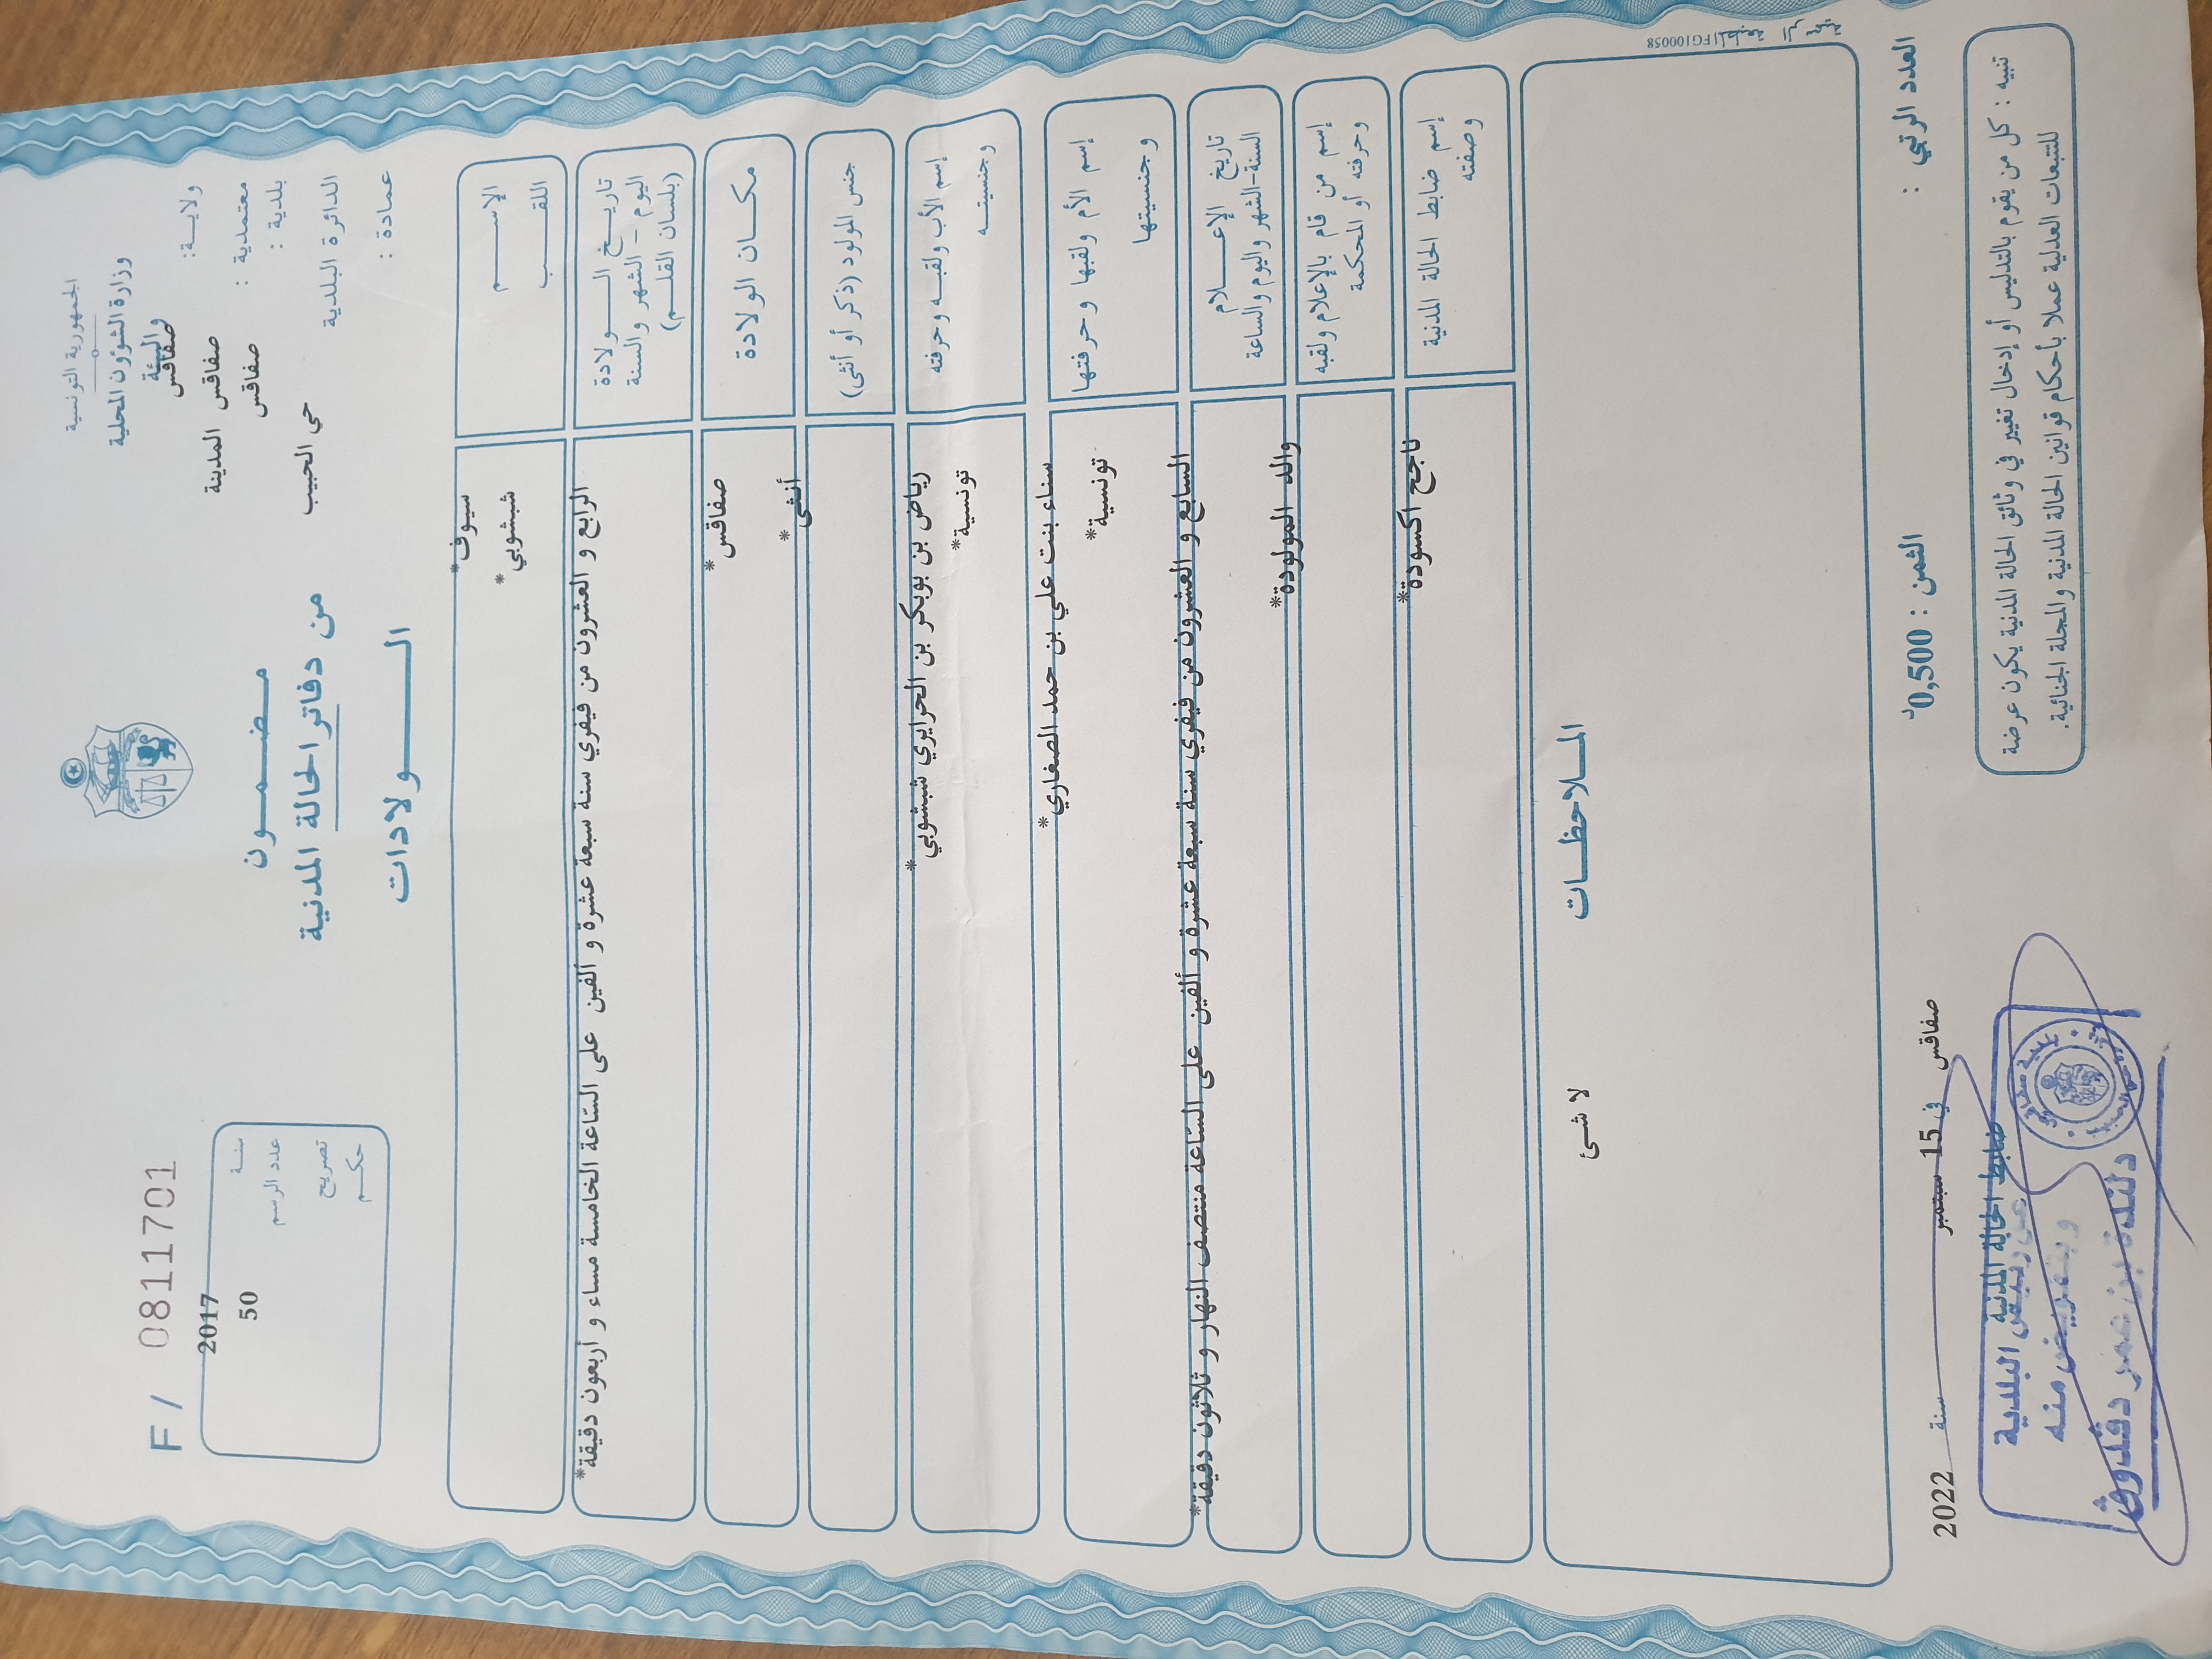 الجمهورية التونسية
وزارة الشؤون المحلية
والبيئة
ولايـة: صفاقس
معتمدية : صفاقس المدينة
بلدية : صفاقس
الدائرة البلدية حي الحبيب
عمادة :
مـضـمـون
من دفاتر الحالة المدنية
الـولادات
F / 0811701
سنـة 2017
عدد الرسم 50
تصريح
حكـم
الإسـم سيوف*
اللقـب شبشوبي*
تاريـخ الـولادة
اليوم – الشهر والسنة
(بلسان القلـم)
الرابع و العشرون من فيفري سنة سبعة عشرة و ألفين على السّاعة الخامسة مساء و أربعون دقيقة*
مكـان الولادة صفاقس*
جنس المولود (ذكر أو أنثى) أنثى*
إسم الأب ولقبـه وحرفته رياض بن بوبكر بن الحرايري شبشوبي*
وجنسيتـه تونسية*
إسم الأم ولقبها وحرفتها سناء بنت علي بن حمد الصغاري*
وجنسيتها تونسية*
تاريخ الإعـلام
السنة-الشهر واليوم والساعة
السابع و العشرون من فيفري سنة سبعة عشرة و ألفين على السّاعة منتصف النهار و ثلاثون دقيقة*
إسم من قام بالإعلام ولقبه
وحرفته أو المحكمة
والد المولودة*
إسم ضابط الحالة المدنية
وصفته
ناجح اكسودة*
المـلاحظـات
لا شئ
FG100058
العدد الرتبي :
الثمن : 0,500د
صفاقس في 15 سبتمبر سنة 2022
ضابط الحالة المدنية
تنبيه : كل من يقوم بالتدليس أو إدخال تغيير في وثائق الحالة المدنية يكون عرضة
للتتبعات العدلية عملا بأحكام قوانين الحالة المدنية والمجلة الجنائية.
البلدية
وبتفويض منه
دقدوق